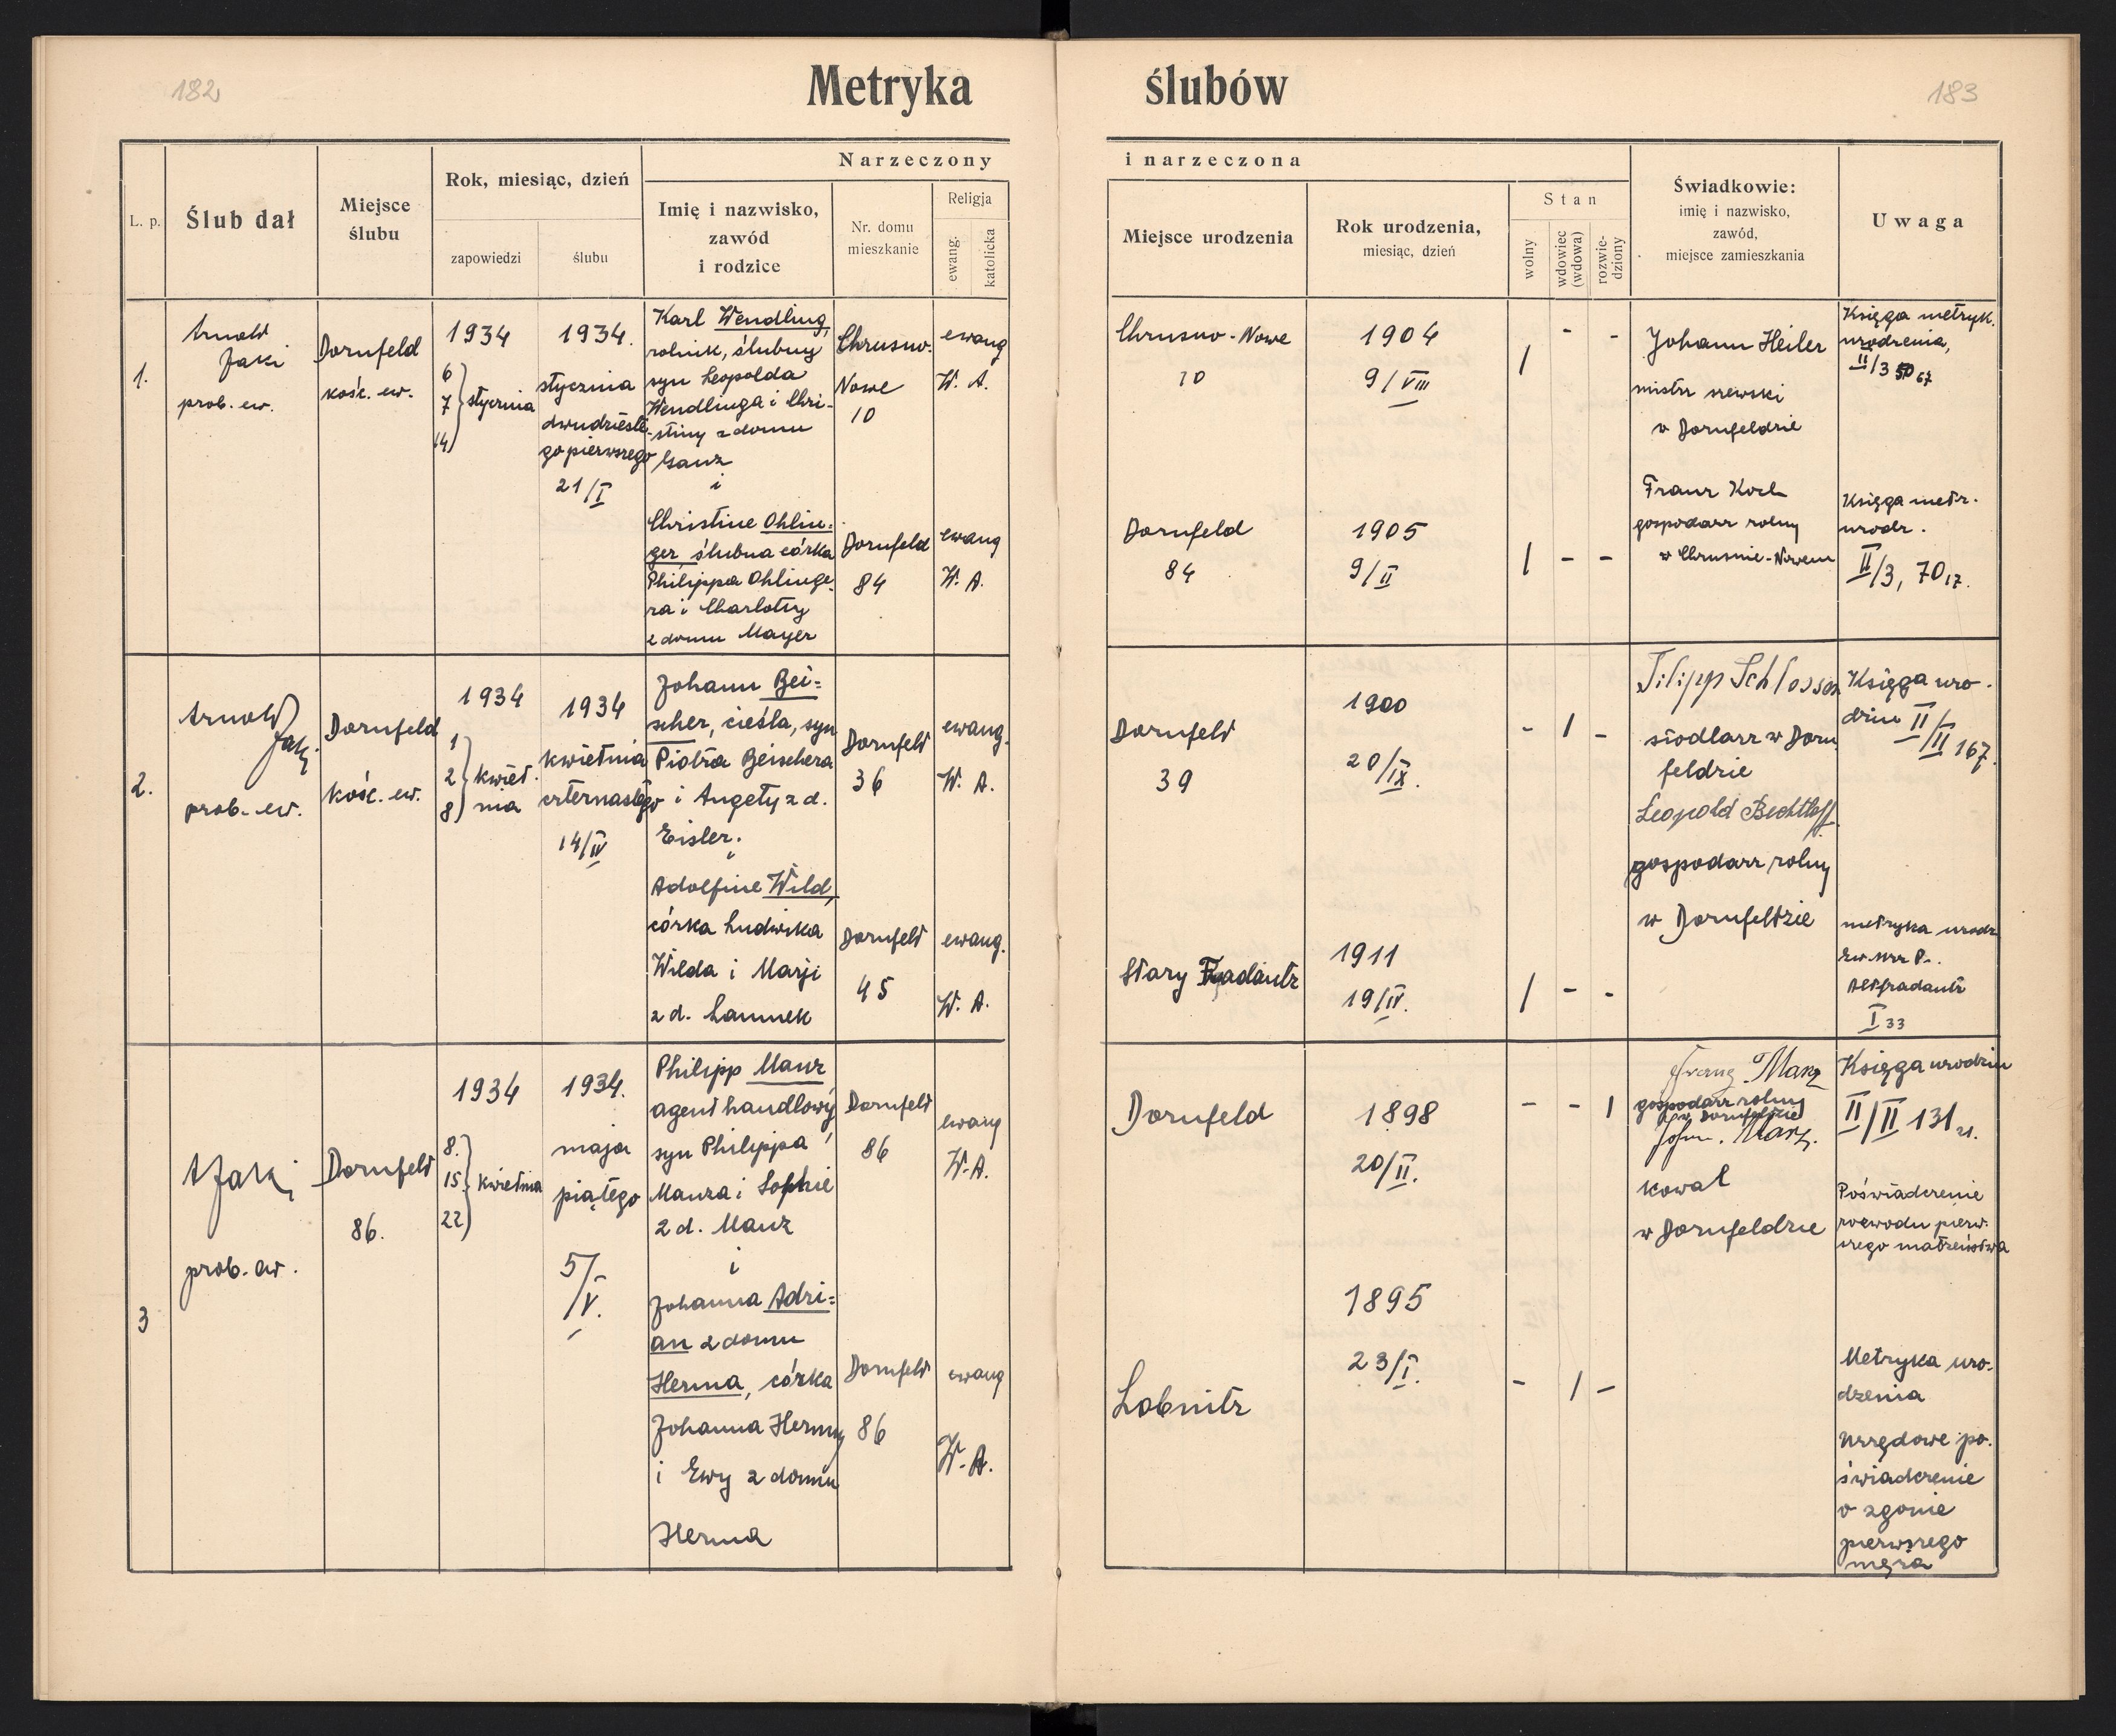 182
Metryka ślubów
183
L. p.
Ślub dał
Miejsce
ślubu
Rok, miesiąc, dzień
zapowiedzi
ślubu
Narzeczony
Imię i nazwisko,
zawód
i rodzice
Nr. domu
mieszkanie
Religja
ewang.
katolicka
i narzeczona
Miejsce urodzenia
Rok urodzenia,
miesiąc, dzień
Stan
wolny
wdowiec
(wdowa)
rozwie-
dziony
Świadkowie:
imię i nazwisko,
zawód,
miejsce zamieszkania
Uwaga
1.
Arnold
Jaki
prob. ew.
Dornfeld
kośc. ew.
1934
6
7
14
stycznia
1934.
stycznia
dwudzieste-
go pierwszego
21/I
Karl Wendling,
rolnik, ślubny
syn Leopolda
Wendlinga i Chri-
stiny z domu
Ganz
i
Christine Ohlin=
ger ślubna córka
Philippa Ohlinge-
ra i Charlotty
z domu Mayer
Chrusno-
Nowe
10
ewang
W. A.
Dornfeld
84
ewang
W. A.
Chrusno-Nowe
10
1904
9/VIII
/ - -
Dornfeld
84
1905
9/II
/ - -
Johann Heiler
mistrz szewski
w Dornfeldzie
Franz Koch
gospodarz rolny
w Chrusnie-Nowem
Księga metryk.
urodzenia,
II/3 50 67
Księga metr.
urodz.
II/3, 70 17.
2.
Arnold
Jaki
prob. ew.
Dornfeld
kośc. ew.
1934
1
2
8
kwiet-
nia
1934
kwietnia
czternastego
14/IV
Johann Bei=
scher, cieśla, syn
Piotra Beischera
i Angety z d.
Eisler.
i
Adolfine Wild,
córka Ludwika
Wilda i Marji
z d. Lammek
Dornfeld
36
ewang.
W. A.
Dornfeld
45
ewang.
W. A.
Dornfeld
39
1900
20/IX.
- / -
Stary Fradautz
1911
19/IV.
/ - -
Filipp Schlosser
siodlarz w Dorn
feldzie
Leopold Bechtloff
gospodarz rolny
w Dornfeldzie
Księga uro-
dzin II/II 167.
metryka urodz
Altfradautz
I 33
3
A Jaki
prob. ew.
Dornfeld
86.
1934
8.
15.
22
kwietnia
1934.
maja
piątego
5/V.
Philipp Manz
agent handlowy,
syn Philippa
Manza i Sophie
z d. Manz
i
Johanna Adri=
an z domu
Herma, córka
Johanna Hermy
i Ewy z domu
Herma
Dornfeld
86
ewang
W. A.
Dornfeld
86
ewang
W. A.
Dornfeld
1898
20/II.
- - /
Lobnitz
1895
23/I.
- / -
Franz Manz
gospodarz rolny
w Dornfeldzie
Joh. Manz.
kowal
w Dornfeldzie
Księga urodzin
II/II 131 21.
Poświadczenie
rozwodu pierw-
szego małżeństwa
Metryka uro-
dzenia
Urzędowe po-
świadczenie
o zgonie
pierwszego
męża